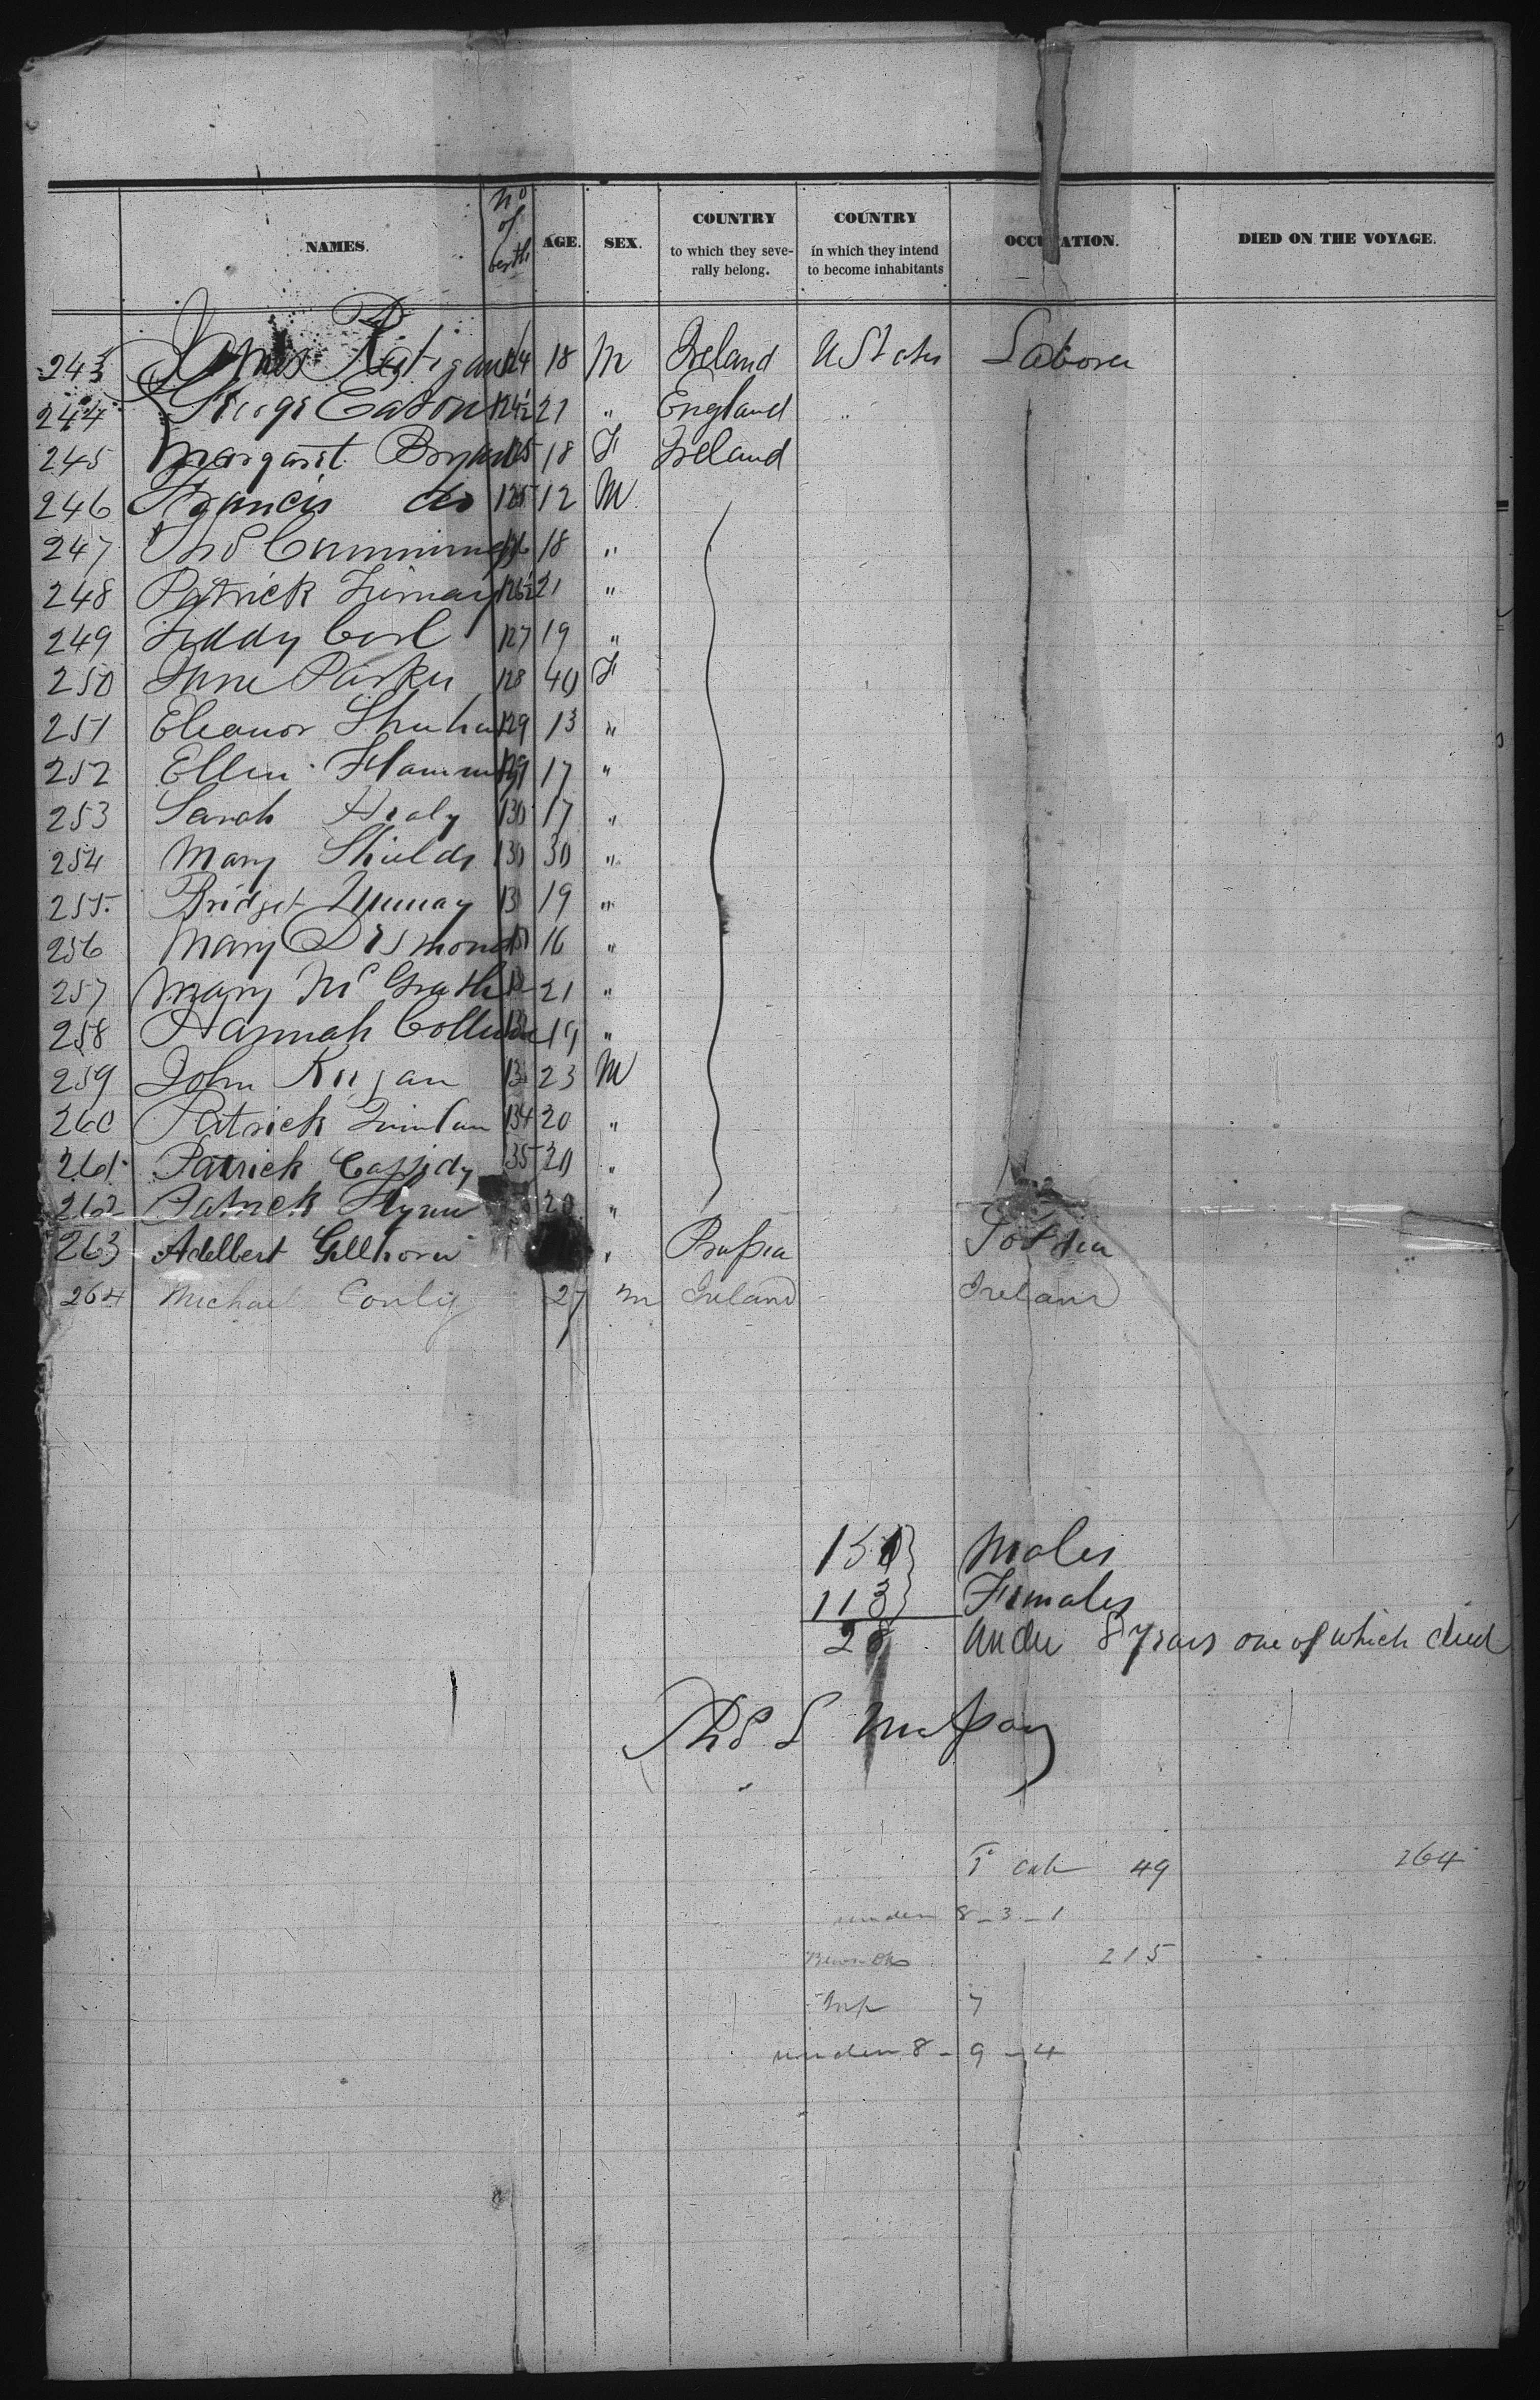 NAMES. No of berth AGE. SEX. COUNTRY to which they seve-rally belong. COUNTRY in which they intend to become inhabitants OCCUPATION. DIED ON THE VOYAGE.
243 James 124 18 M Ireland U States Laborer
244 George Eaton 124½ 21 " England "
245 Margaret Bryan 125 18 F Ireland
246 Francis do 125 12 M
247 Thos Cummings 126 18 "
248 Patrick 126½ 21 "
249 Teddy 127 19 "
250 Jane Parker 128 40 F
251 Eleanor 129 13 "
252 Ellen 129 17 "
253 Sarah Healy 130 17 "
254 Mary Shields 130 30 "
255 Bridget 19 "
256 Mary Desmond 131 16 "
257 Mary McGrath 21 "
258 Hannah 19 "
259 John 23 M
260 Patrick Quinlan 134 20 "
261 Patrick Cassidy 135 20 "
262 Patrick Flynn 20 "
263 Adelbert Gellhorn " Prussia
264 Michael Conly 27 m Ireland Ireland
151 Males
113 Females
28 under 8 years one of which died
Thos S
49 264
under 8 - 3 - 1
215
Inf 7
under 8 - 9 - 4